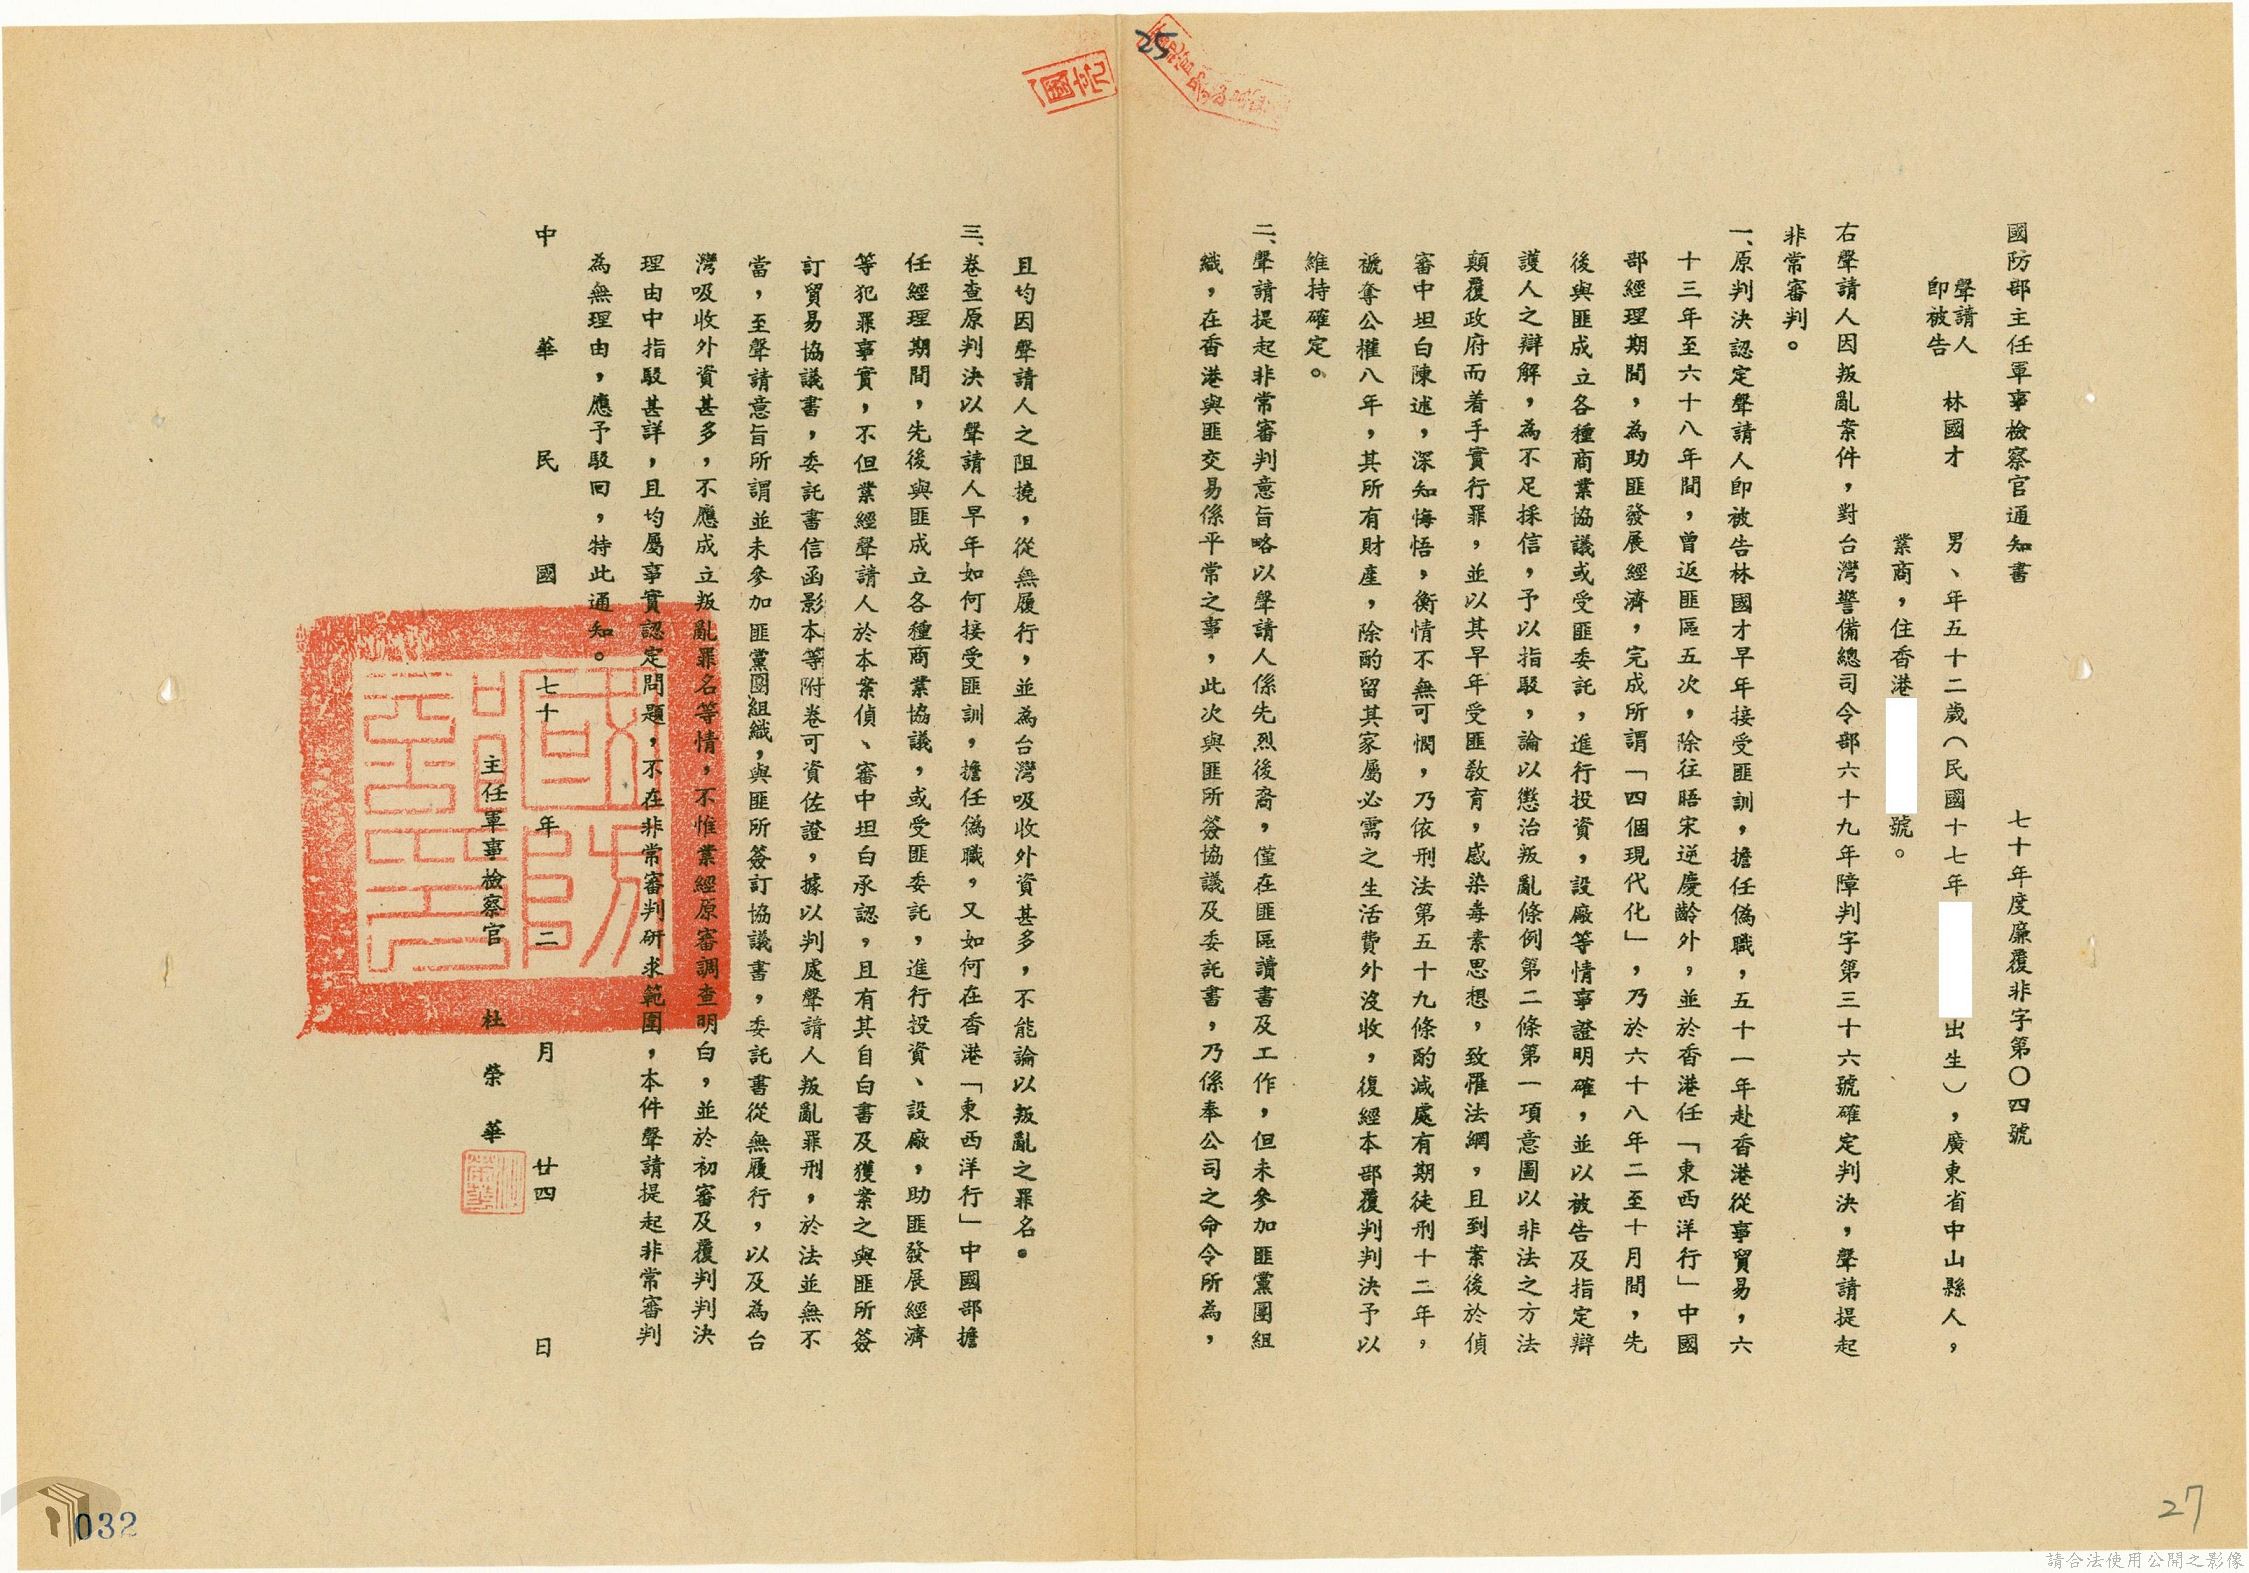 國防部主任軍事檢察官通知書
七十年度廉覆非字第〇四號
聲請人
即被告
林國才
男、年五十二歲(民國十七年
出生),廣東省中山縣人,
業商,住香港
號。
右聲請人因叛亂案件,對台灣警備總司令部六十九年障判字第三十六號確定判決,聲請提起
非常審判。
一、原判決認定聲請人即被告林國才早年接受匪訓,擔任偽職,五十一年赴香港從事貿易,六
十三年至六十八年間,曾返匪區五次,除往晤宋逆慶齡外,並於香港任「東西洋行」中國
部經理期間,為助匪發展經濟,完成所謂「四個現代化」,乃於六十八年二至十月間,先
後與匪成立各種商業協議或受匪委託,進行投資,設廠等情事證明確,並以被告及指定辯
護人之辯解,為不足採信,予以指駁,論以懲治叛亂條例第二條第一項意圖以非法之方法
顛覆政府而着手實行罪,並以其早年受匪教育,感染毒素思想,致罹法網,且到案後於偵
審中坦白陳述,深知悔悟,衡情不無可憫,乃依刑法第五十九條酌減處有期徒刑十二年,
褫奪公權八年,其所有財產,除酌留其家屬必需之生活費外沒收,復經本部覆判判決予以
維持確定。
二、聲請提起非常審判意旨略以聲請人係先烈後裔,僅在匪區讀書及工作,但未參加匪黨團組
織,在香港與匪交易係平常之事,此次與匪所簽協議及委託書,乃係奉公司之命令所為,
且均因聲請人之阻撓,從無履行,並為台灣吸收外資甚多,不能論以叛亂之罪名。
三、卷查原判決以聲請人早年如何接受匪訓,擔任偽職,又如何在香港「東西洋行」中國部擔
任經理期間,先後與匪成立各種商業協議,或受匪委託,進行投資、設廠,助匪發展經濟
等犯罪事實,不但業經聲請人於本案偵、審中坦白承認,且有其自白書及獲案之與匪所簽
訂貿易協議書,委託書信函影本等附卷可資佐證,據以判處聲請人叛亂罪刑,於法並無不
當,至聲請意旨所謂並未參加匪黨團組織,與匪所簽訂協議書,委託書從無履行,以及為台
灣吸收外資甚多,不應成立叛亂罪名等情,不惟業經原審調查明白,並於初審及覆判判決
理由中指駁甚詳,且均屬事實認定問題,不在非常審判研求範圍,本件聲請提起非常審判
為無理由,應予駁回,特此通知。
中華民國七十年二月廿四日
主任軍事檢察官 杜榮華
25
27
032
請合法使用公開之影像